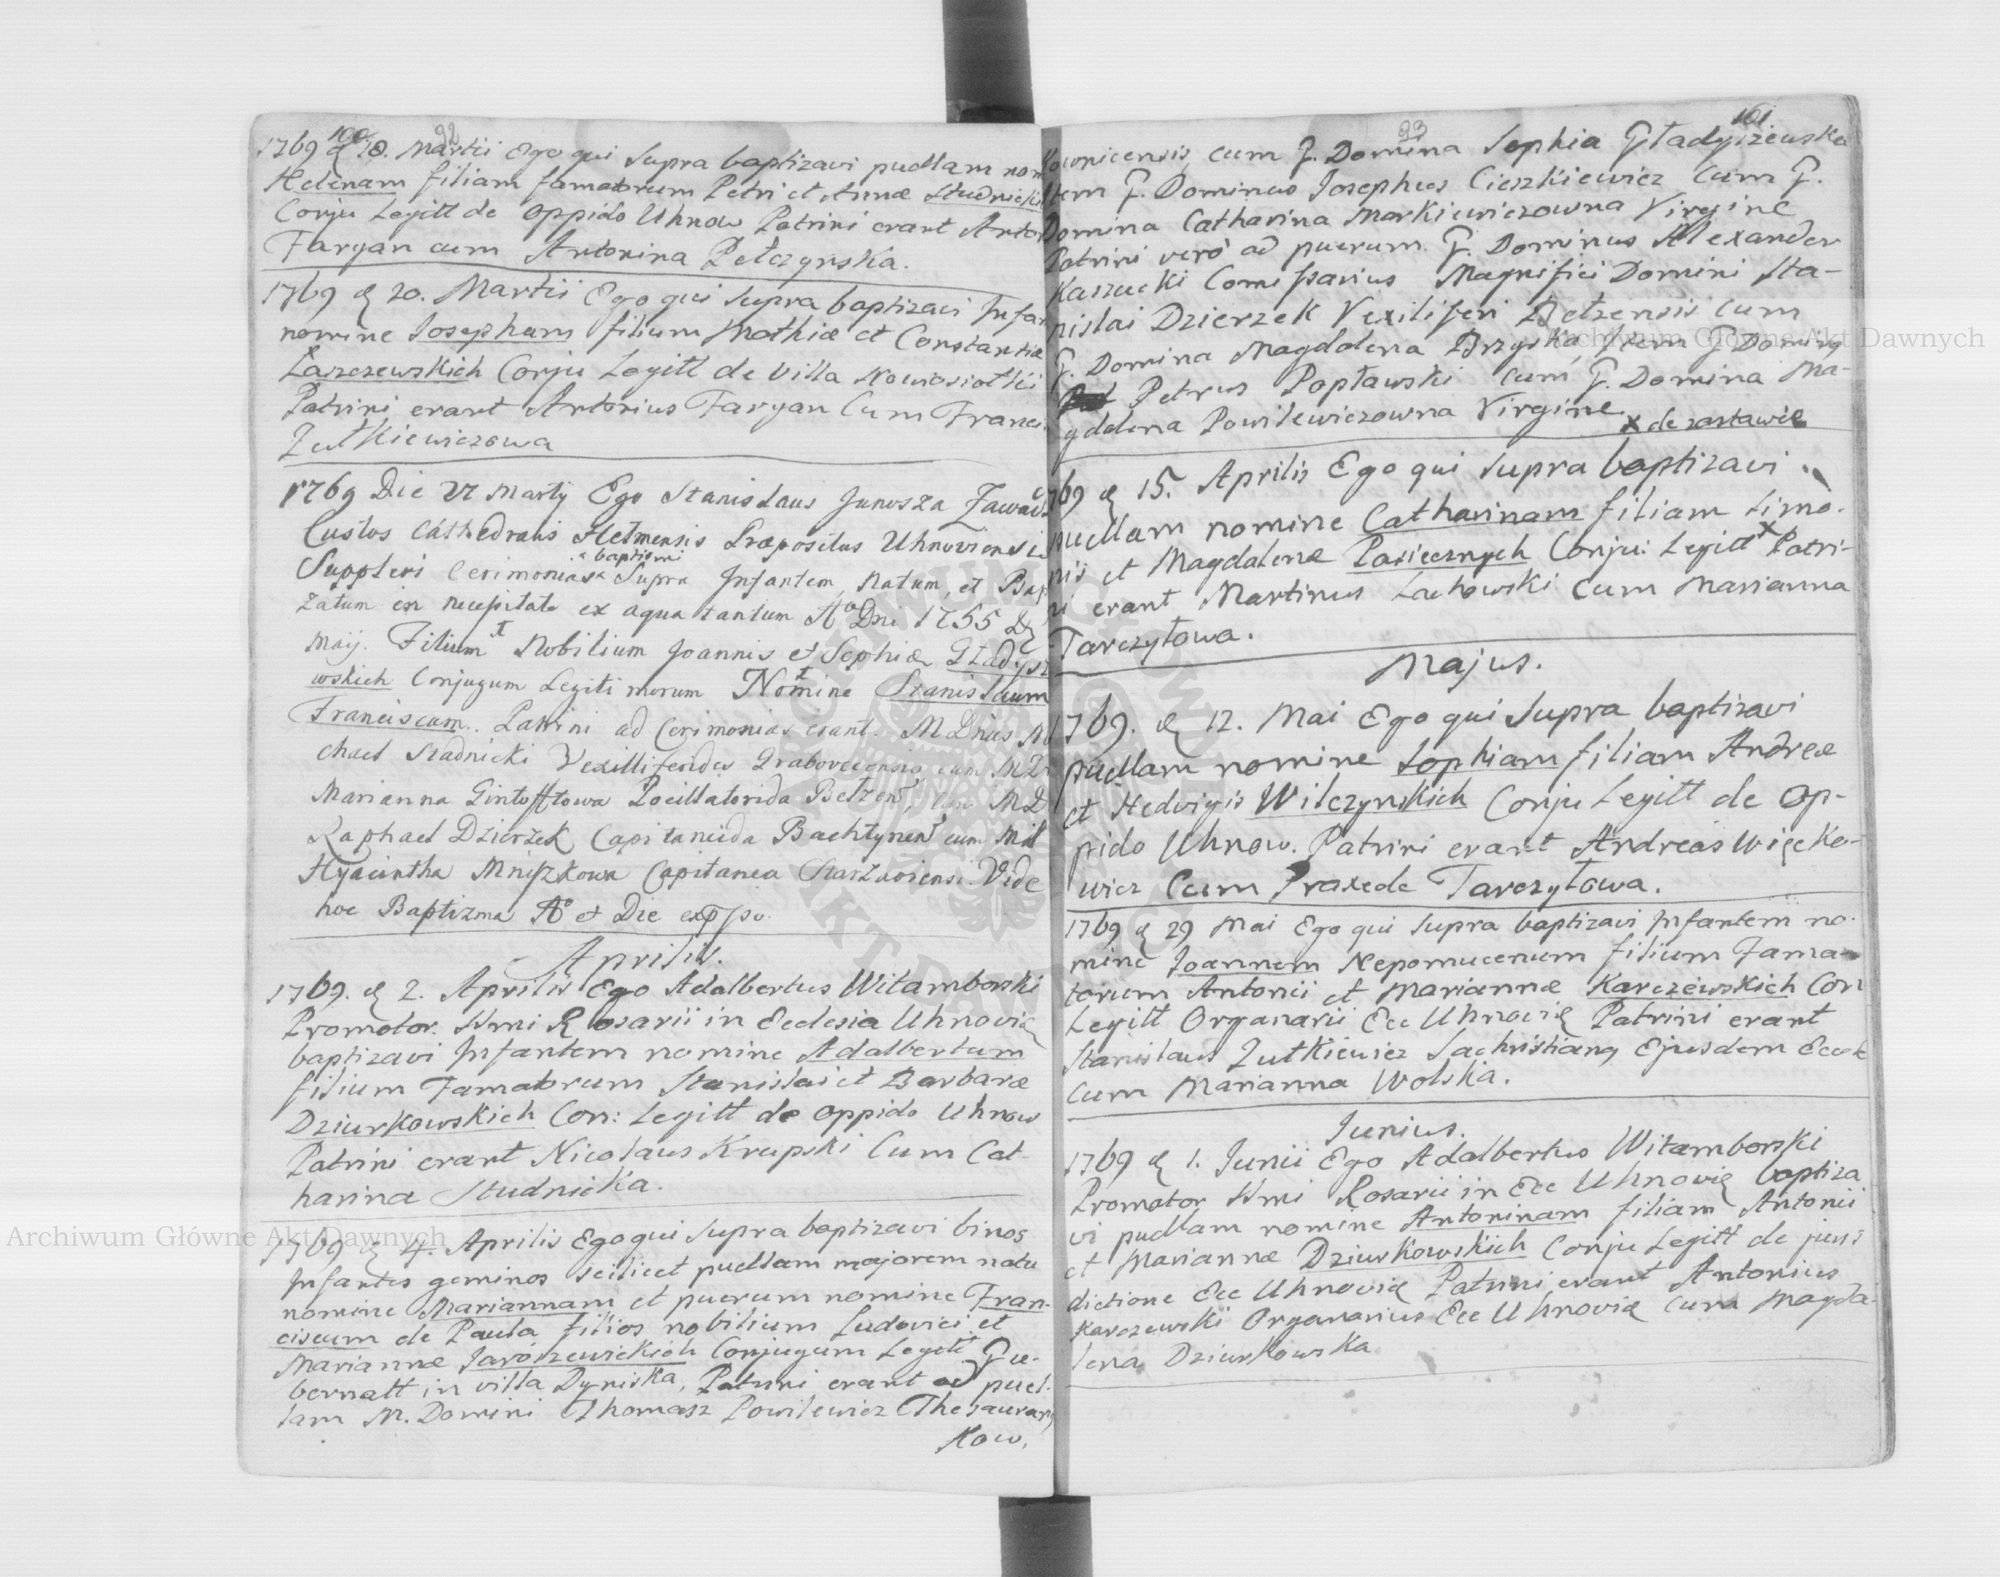 100 92
1769 d 18. Martii Ego qui supra baptizavi puellam nom
Helenam filiam famatorum Petri et Annæ Studnicki
Conju Legitt de oppido Uhnow Patrini erant Anton
Faryan cum Antonina Pełczynska.
1769 d 20. Martii Ego qui supra baptizavi Infan
nomine Josephum filium Mathiæ et Constantiæ
Łaszczewskich Conju Legitt de Villa Nowosiołki
Patrini erant Antonius Faryan Cum Franci
Zułkiewiczowa
1769 Die 27 Martij Ego Stanislaus Junosza Zawadz
Custos Cathedralis Hełmensis Præpositus Uhnoviensis
Supplevi Cerimonias baptismi Supra Infantem, natum, et Bap
zatum in necessitate ex aqua tantum Ao Dni 1765 d
Maij. Filium Nobilium Joannis et Sophiæ Gładysz
wskich Conjugum Legitimorum Nomine Stanislaum
Franciscum. Patrini ad Cerimonias erant. M Dnus Mi
chael Stadnicki Vexilliferides Grabovecensis cum M
Marianna Gintofftowa Pocillatorida Bełzen M D
Raphael Dzierzek Capitaneida Bachtynen cum M
Hyacintha Mniszkowa Capitanea Vide
hoc Baptizma Ao et Die
Aprilis.
1769. d 2. Aprilis Ego Adalbertus Witamborski
Promotor. Ssmi Rosarii in Ecclesia Uhnovię
baptizavi Infantem nomine Adalbertum
filium Famatorum Stanislai et Barbaræ
Dziurkowskich Con: Legitt de oppido Uhnow
Patrini erant Nicolaus Krupski Cum Cat-
harina Studnicka.
1769 d 4. Aprilis Ego qui supra baptizavi binos
Infantes geminos scilicet puellam majorem natu
nomine Mariannam et puerum nomine Fran-
ciscum de Paula filios nobilium Ludovici et
Mariannæ Jaroszewickich Conjugum Legitt Gu-
bernatt in villa Dyniska, Patrini erant ad puel-
lam M. Domini Thomasz Powilewicz Thesaurarij
Kow,
93 101
Kownicensis, cum G. Domina Sophia Gładyszewska
Item G. Dominus Josephus Cieszkiewicz Cum G.
Domina Catharina Markiewiczowna Virgine
Patrini verò ad puerum G. Dominus Alexander
Kaszucki Comissarius Magnifici Domini Sta-
nislai Dzierzek Vexiliferi Bełzensis cum
G. Domina Magdalena Brzyska, Item G Dominus
Petrus Popławski cum G. Domina Ma-
gdalena Powilewiczowna Virgine. x de zastawie
1769 d 15. Aprilis Ego qui supra baptizavi
puellam nomine Catharinam filiam Simo-
nis et Magdalenæ Pasiecznych Conju: Legitt x Patri-
ni erant Martinus Lachowski Cum Marianna
Tarczyłowa.
Majus.
1769. d 12. Mai Ego qui supra baptizavi
puellam nomine Sophiam filiam Andreæ
et Hedvigis Wilczynskich Conju Legitt de op-
pido Uhnow. Patrini erant Andreas Więcko-
wicz Cum Praxede Tarczyłowa.
1769 d 29 Mai Ego qui supra baptizavi Infantem no-
mine Joannem Nepomucenum filium Fama-
torum Antonii et Mariannæ Karczewskich Con
Legitt Organarii Ecc Uhnovię Patrini erant
Stanislaus Zułkiewicz Sachristianus Ejusdem Eccl
cum Marianna Wolska.
Junius.
1769 d 1. Junii Ego Adalbertus Witamborski
Promotor Ssmi Rosarii in Ecc Uhnovię baptiza
vi puellam nomine Antoninam filiam Antonii
et Mariannæ Dziurkowskich Conju Legitt de juris
dictione Ecc Uhnovię Patrini erant Antonius
Karczewski Organarius Ecc Uhnovię Cum Magda-
lena Dziurkowska
Archiwum Główne Akt Dawnych
Archiwum Główne Akt Dawnych